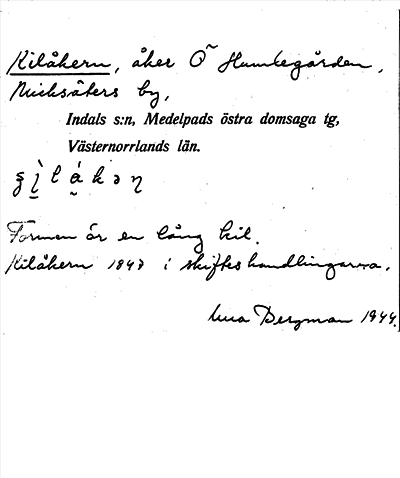 Kilåkern, åker Ö Humlegården,
by,
Indals s:n, Medelpads östra domsaga tg,
Västernorrlands län.
Formen är en lång kil.
Kilåkern 1847 i skifteshandlingarna.
Bergman 1944.